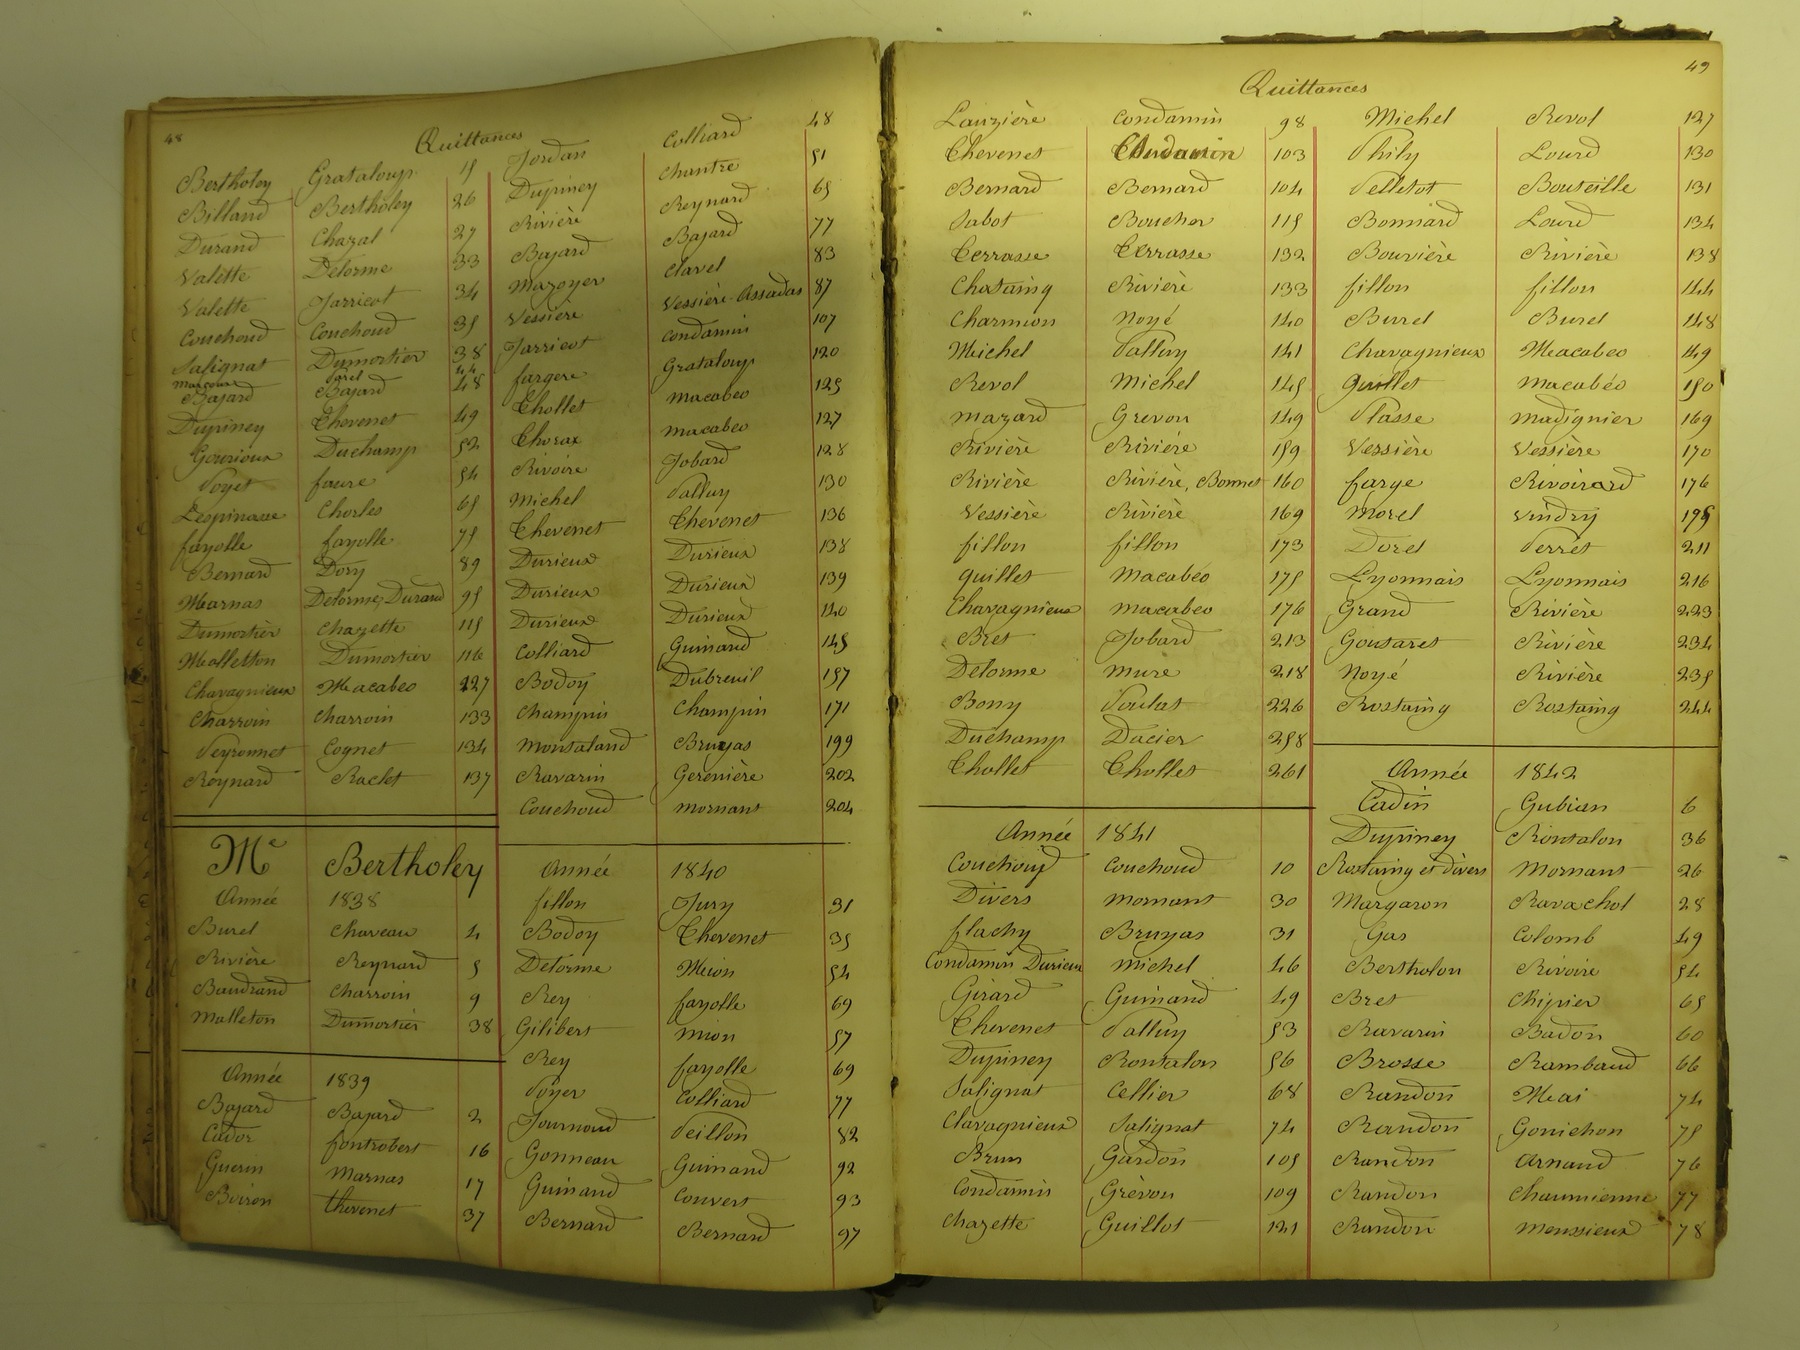 48
Quittances
Bertholoy Grataloup 15
Billand Bertholey 26
Durand Chazal 27
Valette Delorme 33
Valette Jarricot 34
Couchoud Couchoud 35
Salignat Dumortier 38
44
Bajard Bajard 48
Dupiney Thevenet 49
Gourioux Duchamp 52
Poyet faure 54
Lespinasse Chorles 65
fayolle fayolle 75
Bernard Dory 89
Marnas Delorme, Durand 95
Dumortier Chazette 115
Malletton Dumortier 116
Chavagnieux Macabeo 127
Charroin Charroin 133
Peyronnet Cognet 134
Reynard Raclet 137
Me Bertholey
Année 1838
Burel Chaveau 4
Rivière Reynard 5
Baudrand Charroin 9
Malleton Dumortier 38
Année 1839
Bajard Bajard 2
Cador fontrobert 16
Guerin Marnas 17
Boiron thevenet 37
Jordan Colliard 48
Dupiney Chantre 51
Rivière Reynard 65
Bajard Bajard 77
Mazoyer Clavel 83
Vessière Vessière-Assadas 87
Jarricot Condamin 107
fargere Grataloup 120
Thollet Macabeo 125
Thorax Macabeo 127
Rivoire Jobard 128
Michel Palluy 130
Thevenet Thevenet 136
Durieux Durieux 138
Durieux Durieux 139
Durieux Durieux 140
Colliard Guinand 145
Bodoy Dubreuil 157
Champin Champin 171
Monsaland Bruyas 199
Ravarin Gerenière 202
Couchoud Mornant 204
Année 1840
fillon Jury 31
Bodoy Thevenet 35
Delorme Meion 54
Rey fayolle 69
Gilibert Mion 57
Rey fayolle 69
Poyer Colliard 77
Journoud Peillon 82
Gonneau Guinand 92
Guinand Couvert 93
Bernard Bernard 97
49
Quittances
Lauzière Condamin 98
Thevenet Condamin 103
Bernard Bernard 104
Sabot Boucher 115
Terrasse Terrasse 132
Chataing Rivière 133
Charmion Noyé 140
Michel Palluy 141
Revol Michel 145
Mazard Grevon 149
Rivière Rivière 159
Rivière Rivière, Bonnet 160
Vessière Rivière 169
fillon fillon 173
Guillet Macabeo 175
Chavagnieux Macabeo 176
Bret Jobard 213
Delorme Mure 218
Bony Poulat 226
Duchamp Dacier 258
Thollet Thollet 261
Année 1841
Couchoud Couchoud 10
Divers Mornant 30
flachy Bruyas 31
Condamin Durieux Michel 46
Girard Guinand 49
Thevenet Palluy 53
Dupiney Rontalon 56
Salignat Cellier 68
Clavagnieux Salignat 74
Brun Gardon 105
Condamin Grèvon 109
Chazette Guillot 121
Michel Revol 127
Phily Lourd 130
Pelletot Bouteille 131
Bonnard Lourd 134
Bouvière Rivière 138
fillon fillon 144
Burel Burel 148
Chavagnieux Macabeo 149
Guillet Macabéo 150
Plasse Madignier 169
Vessière Vessière 170
farge Rivoirard 176
Morel Vindry 195
Dorel Perret 211
Lyonnais Lyonnais 216
Grand Rivière 223
Goutaret Rivière 234
Noyé Rivière 235
Rostaing Rostaing 244
Année 1842
Cadin Gubian 6
Dupiney Rontalon 36
Rostaing et divers Mornant 26
Margaron Ravachol 28
Gas Colomb 49
Bertholon Rivoire 54
Bret Chipier 65
Ravarin Badon 60
Brosse Rambaud 66
Randon Meai 74
Randon Gonichon 75
Randon Arnaud 76
Randon Chaumienne 77
Randon Monssieux 78